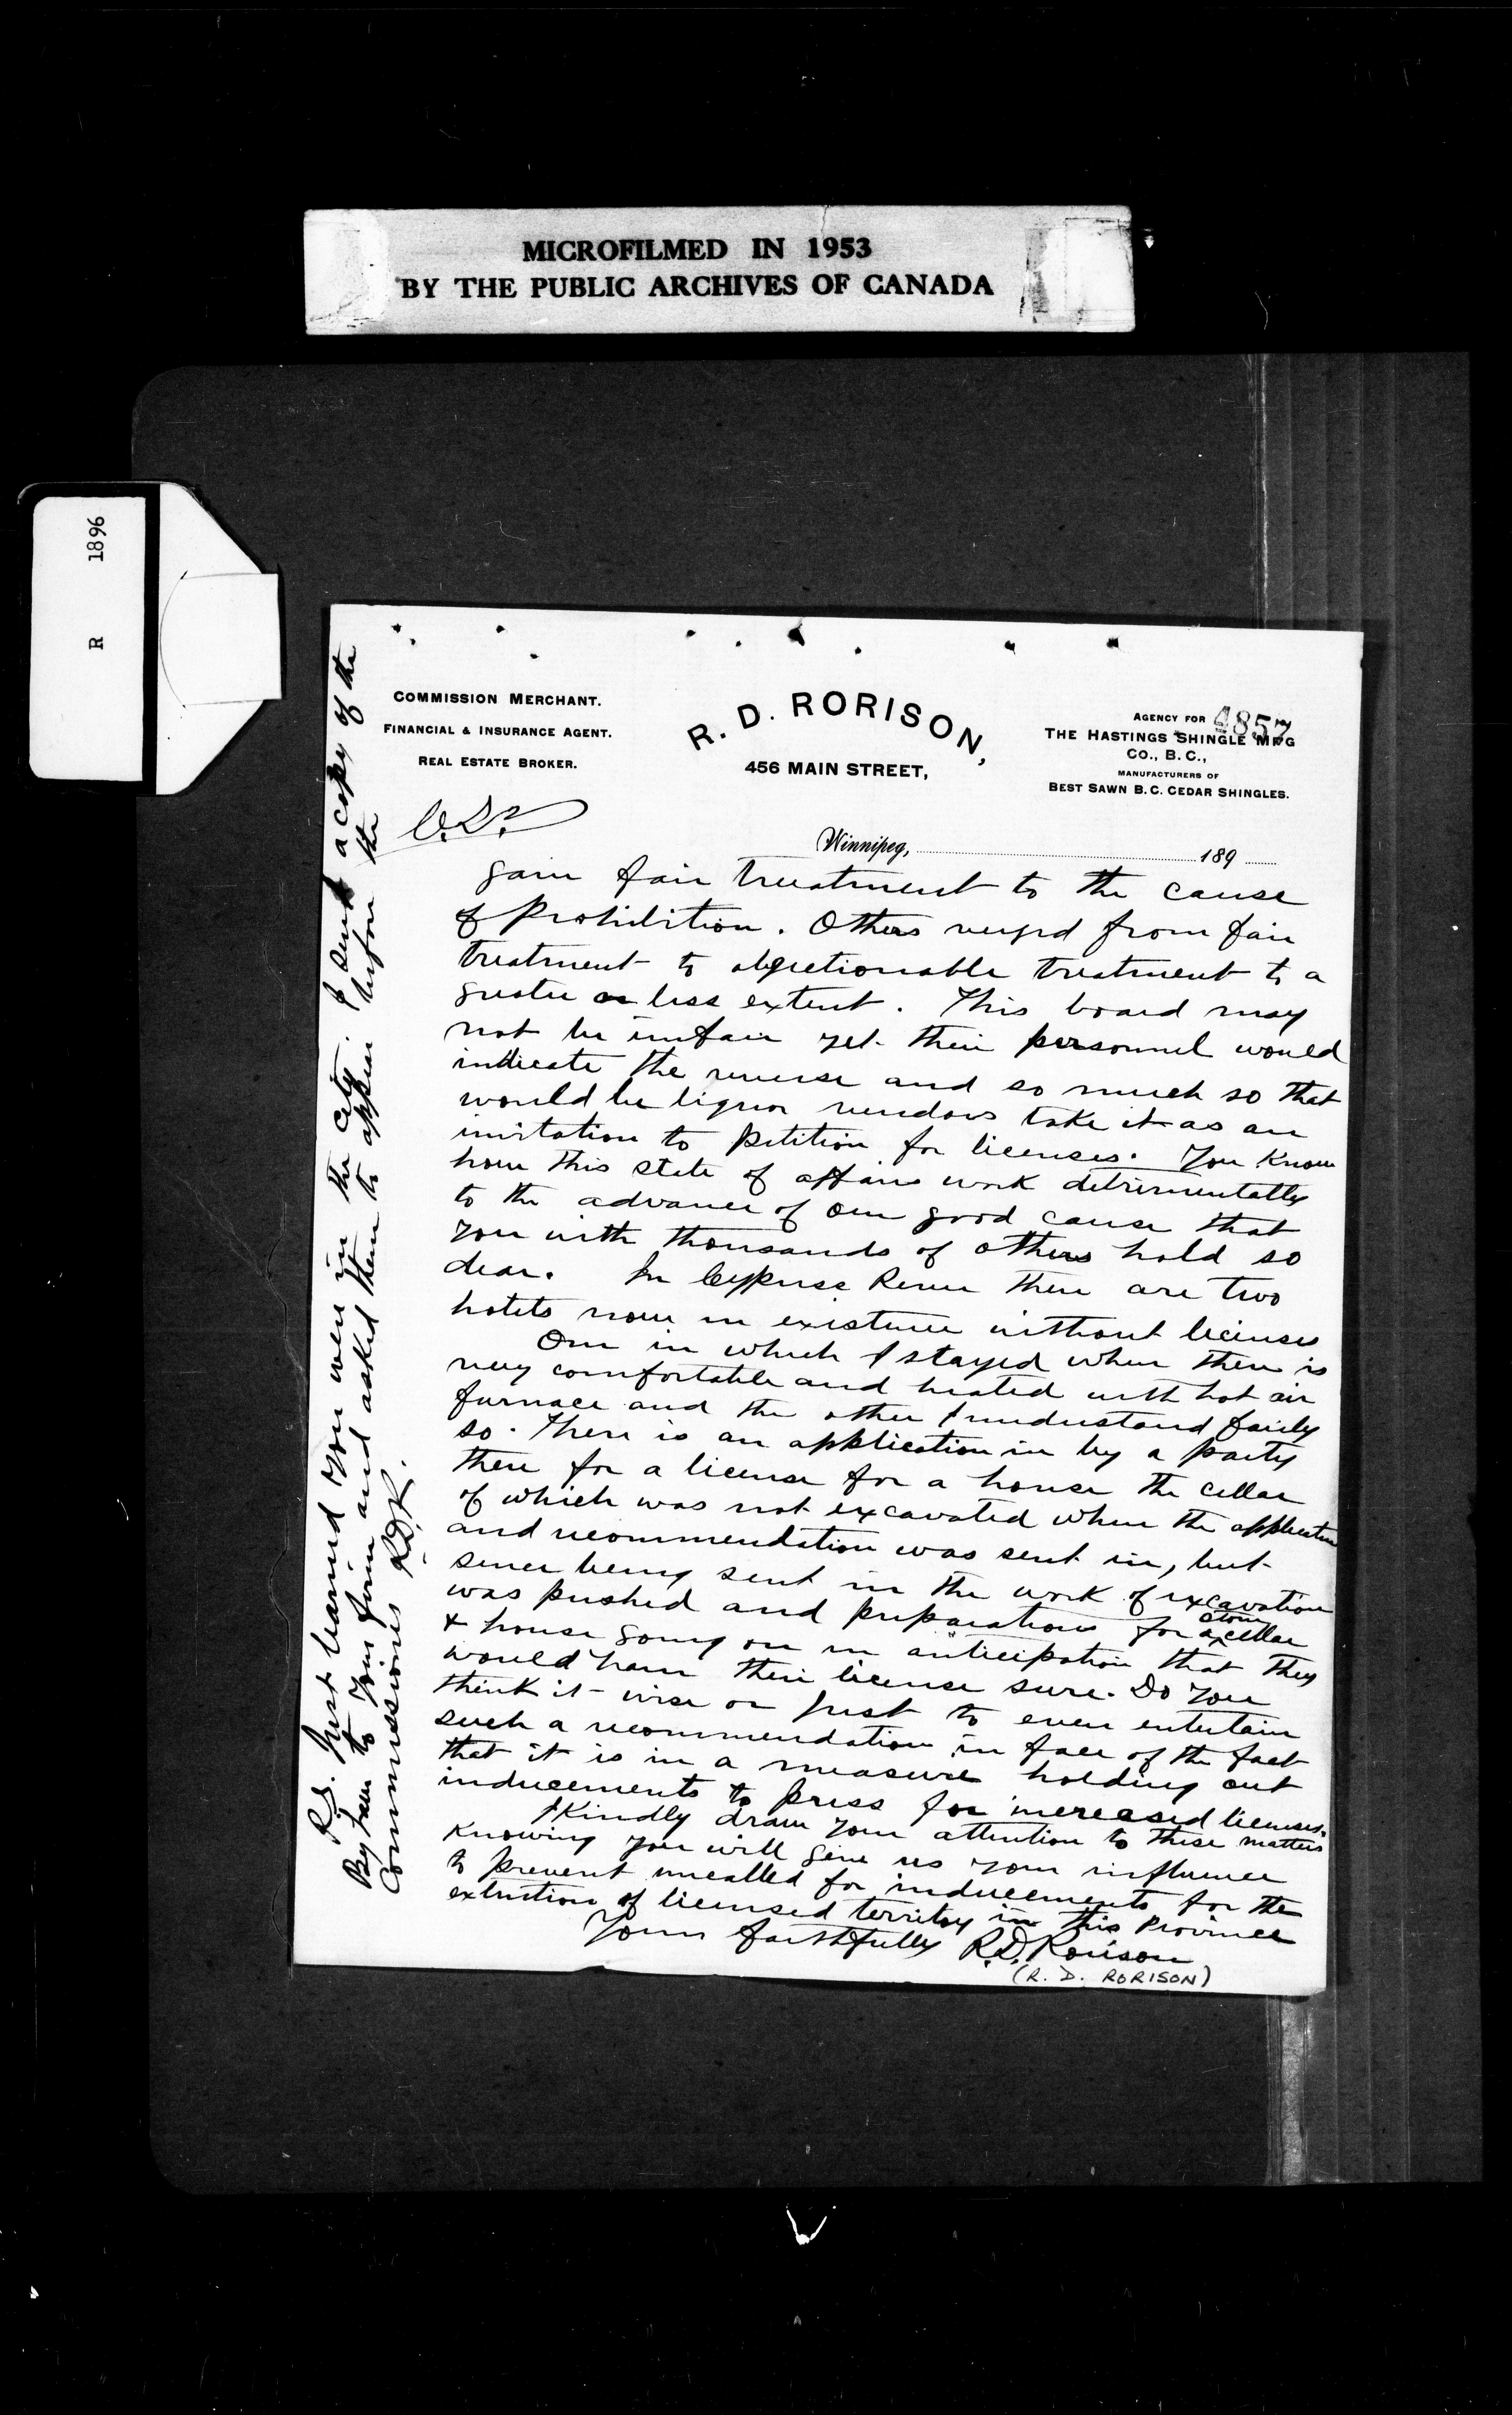 MICROFILMED IN 1953
BY THE PUBLIC ARCHIVES OF CANADA
R 1896
COMMISSION MERCHANT.
FINANCIAL & INSURANCE AGENT.
REAL ESTATE BROKER.
R. D. RORISON,
456 MAIN STREET,
AGENCY FOR
4857
THE HASTINGS SHINGLE MFG
CO., B. C.,
MANUFACTURERS OF
BEST SAWN B. C. CEDAR SHINGLES.
Winnipeg, 189
gain fair treatment to the cause
of Prohibition. Others verged from fair
treatment to objectionable treatment to a
greater or less extent. This board may
not be unfair yet their personnel would
indicate the reverse and so much so that
would be liquor vendors take it as an
invitation to petition for licenses. You know
how this state of affairs work detrimentally
to the advance of our good cause that
you with thousands of others hold so
dear. In Cypress River there are two
hotels now in existence without licenses
One in which I stayed when there is
very comfortable and heated with hot air
furnace and the other I understand fairly
so. There is an application in by a party
there for a license for a house the cellar
of which was not excavated when the application
and recommendation was sent in, but
since being sent in the work of excavation
was pushed and preparations for a stone cellar
& house going on in anticipation that they
would have their license sure. Do you
think it wise or just to even entertain
such a recommendation in face of the fact
that it is in a measure holding out
inducements to press for increased licenses.
I kindly draw your attention to these matters
knowing you will give us your influence
to prevent uncalled for inducements for the
extention of licensed territory in this Province
Yours faithfully R.D. Rorison
(R. D. RORISON)
P.S. Just learned you were in the city. I sent a copy of the
By Law to your firm and asked them to appear before the
Commissioners R.D.R.